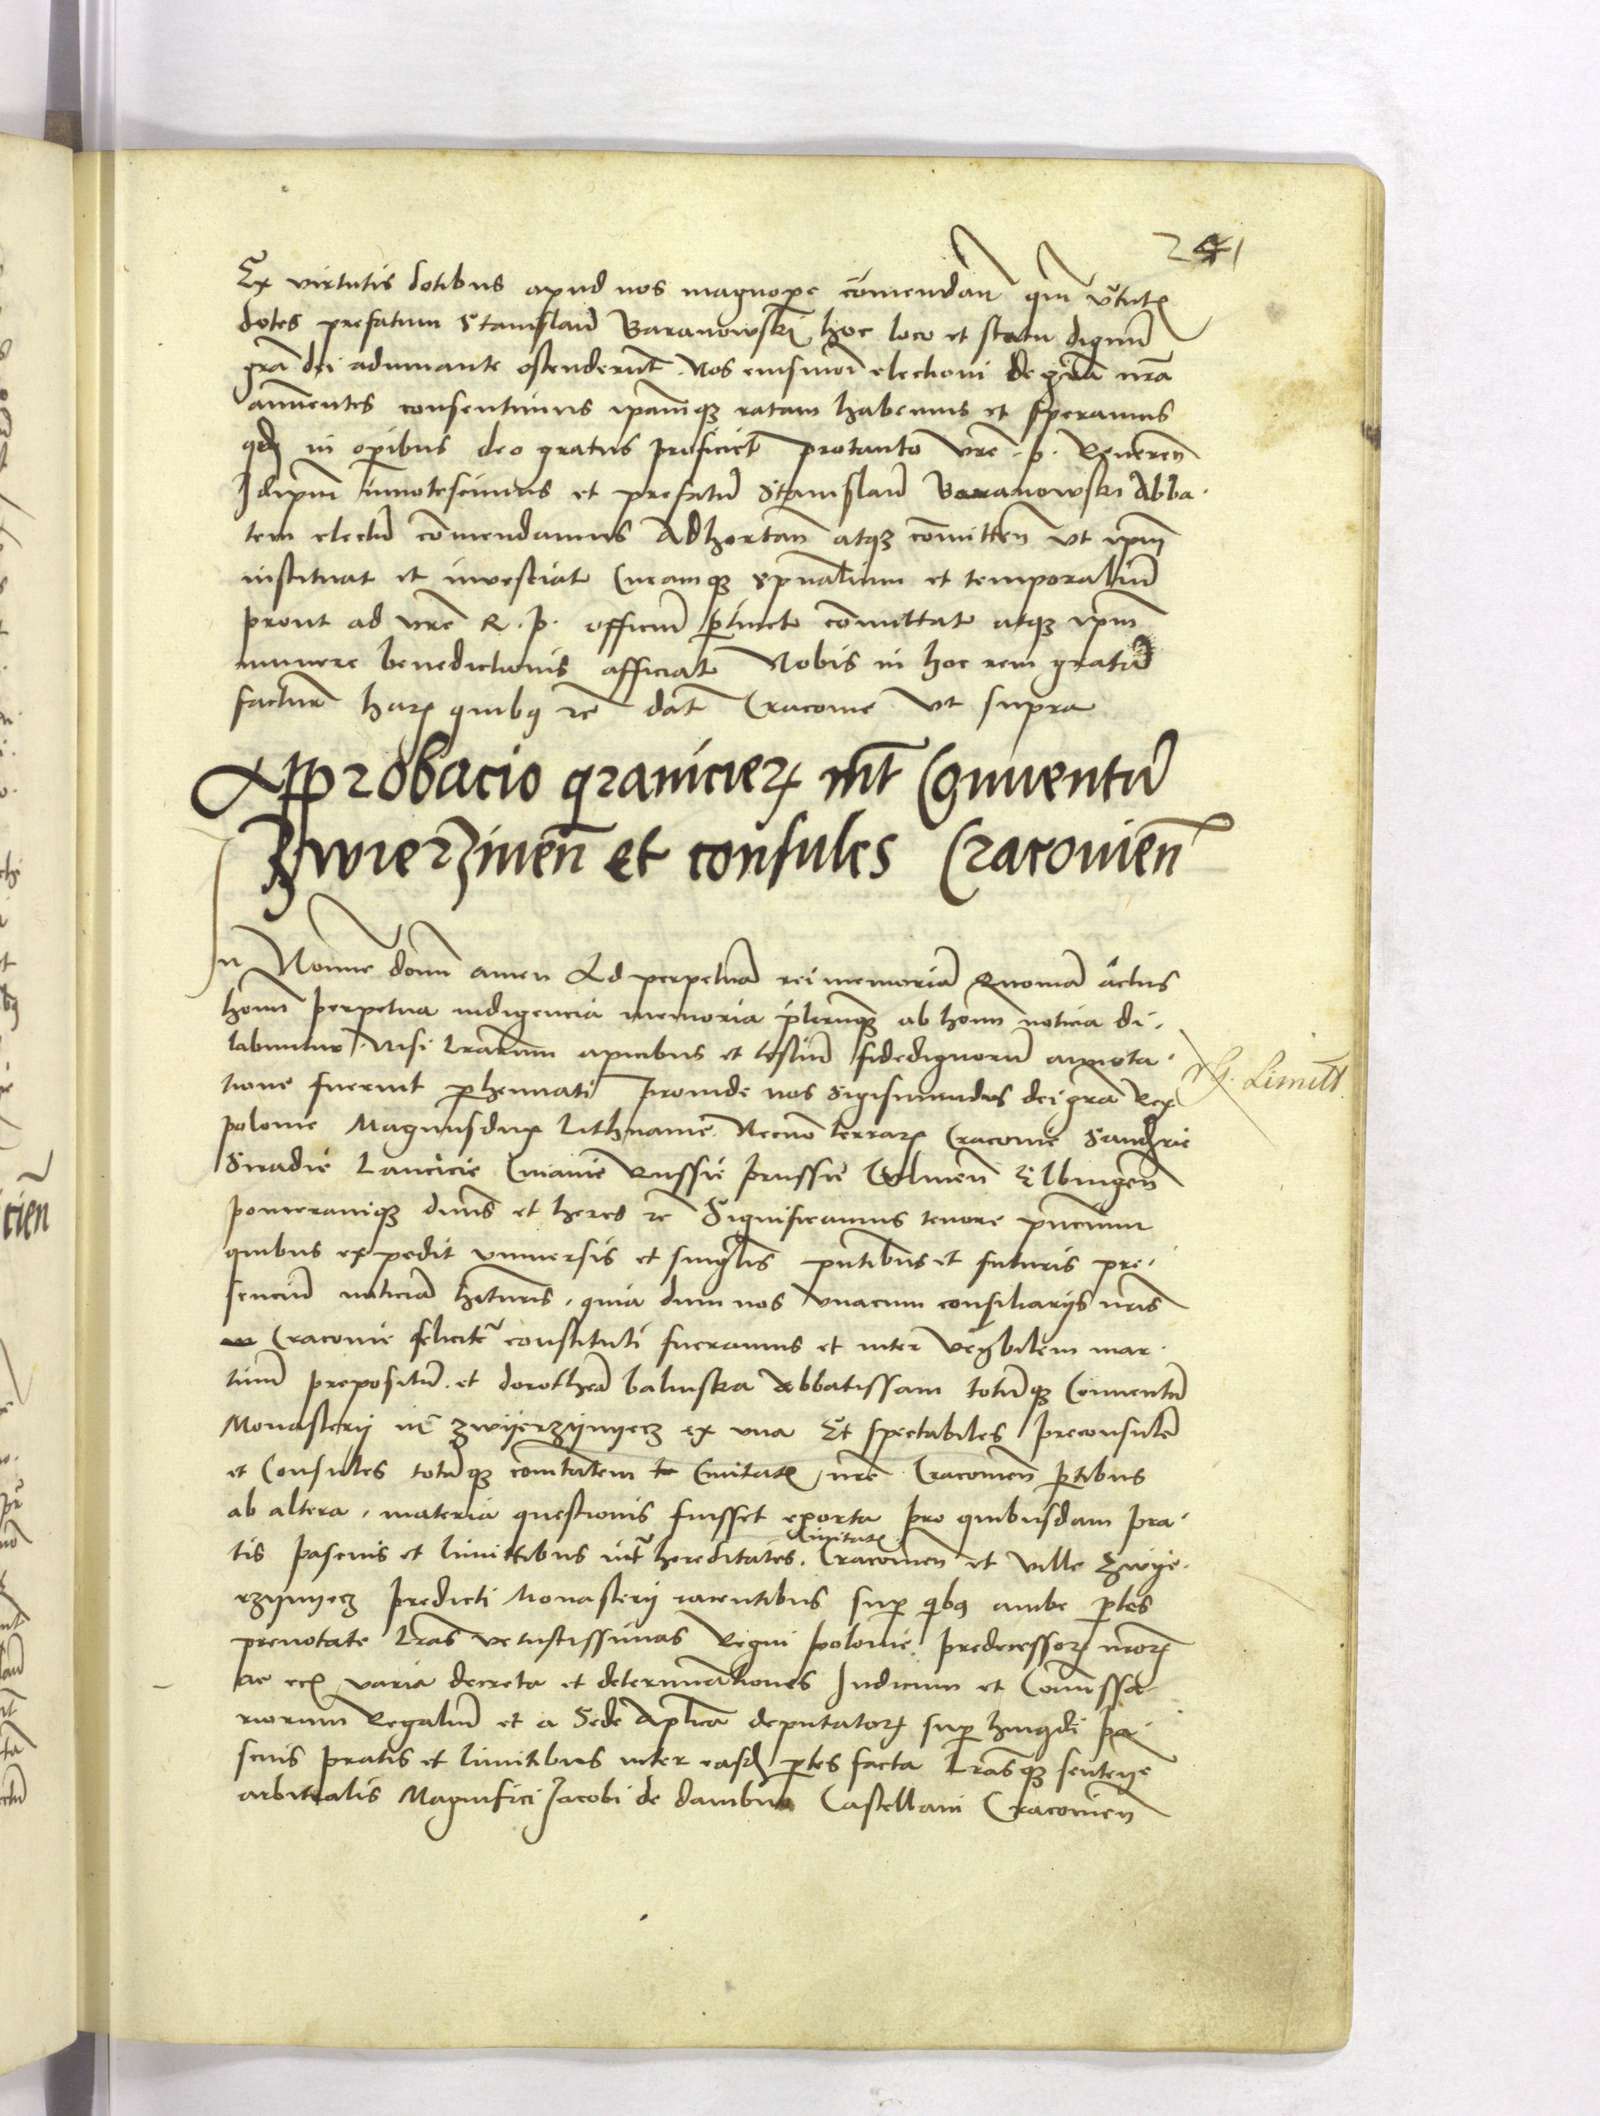 241
Ex virtutis dotibus apud nos magnope cōmendan̄ qm̄ v̄tutꝭ
dotes prefatum Stanislaū Baranowski hoc loco et statu dignū
grā dei adiuuante ostenderunt. Nos eiusmōi electioni de grā nrā
annuentes consentimus ipamqꝫ ratam habemus et speramus
qd̄ in opibus deo gratus proficiet protanto vre. p. Reueren̄
Idipm̄ innotescimus et prefatū Stanislaū Baranowski Abba-
tem electū cōmendamus Adhortan̄ atqꝫ cōmitten̄ vt ipm̄
instituat et inuestiat Curamqꝫ spūalium et temporaliū
prout ad vrē R. p. officiū ptinet cōmittat atqꝫ ipm̄
munere benedictionis afficiat Nobis in hoc rem gratā
facturꝭ harꝝ quibꝰ rē dat̄ Cracouie vt supra
Approbacio granicierꝝ int̄ Conuentū
Zwierzinen̄ et consules Cracouien̄
In Nomine domī amen Ad perpetuā rei memoriā Quoniā actus
homī perpetua indigencia memoria plerumqꝫ ab homī noticia di-
labuntur Nisi lrārum apicibus et testiū fidedignorū annota-
tione fuerint phennati Proinde nos Sigismundus dei grā Rex
polonie Magnusdux Lithuanie. Necnō terrarꝝ Cracouie Sandꝫrie
Siradie Lancicie Cuiauie Russie prussie Culmen̄ Elbingen̄
pomeranieqꝫ dn̄s et heres rē Significamus tenore pn̄cium
quibus expedit vniuersis et singlis pn̄tibus et futuris pre-
senciū noticiā hituris, quia dum nos vnacum consiliarijs nrīs
Cracouie felicit̄ constituti fueramus et inter veꝫbilem mar-
tinū prepositū. et dorotheā balinska Abbatissam totūqꝫ Conuentū
Monasterij in zwijerzijnyecz ex vna Et spectabiles preconsulē
et Consules totāqꝫ cōmtatem Ciuitatꝭ nrē Cracouien̄ ptibus
ab altera, materia questionis fuisset exorta pro quibusdam pra-
Ciuitatꝭ
tis pascuis et limittibus int̄ hereditates. Cracouien̄ et ville Zwye-
rzijnyecz predicti Monasterij iacentibus sup qibꝰ ambe ptes
prenotate lrās vetustissimas Regni polonie. predecessorꝝ nrōrꝝ
ac ecꝫ varia decreta et determinationes Iudicum et Cōmissa-
riorum Regaliū et a Sede Aplica deputatorꝝ sup hm̄gdi pa-
scuis pratis et limitibus inter easdꝫ ptes facta lrāsqꝫ sentencie
arbitralis Magnifici Jacobi de dambno Castellani Cracouien̄
G. Limitt